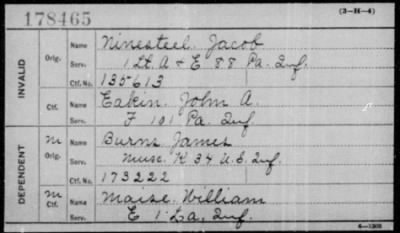 178465
(3-H-4)
INVALID
Orig.
Name Ninesteel. Jacob
Serv. 1 Lt. A + E 88 Pa. Inf.
Ctf. No. 135613
Ctf.
Name Eakin. John A.
Serv. F 101 Pa. Inf.
DEPENDENT
M Orig.
Name Burns James
Serv. Musc. K 34 U.S. Inf.
Ctf. No. 173222
M Ctf.
Name Maise. William
Serv. E 1 La, Inf.
6-1303